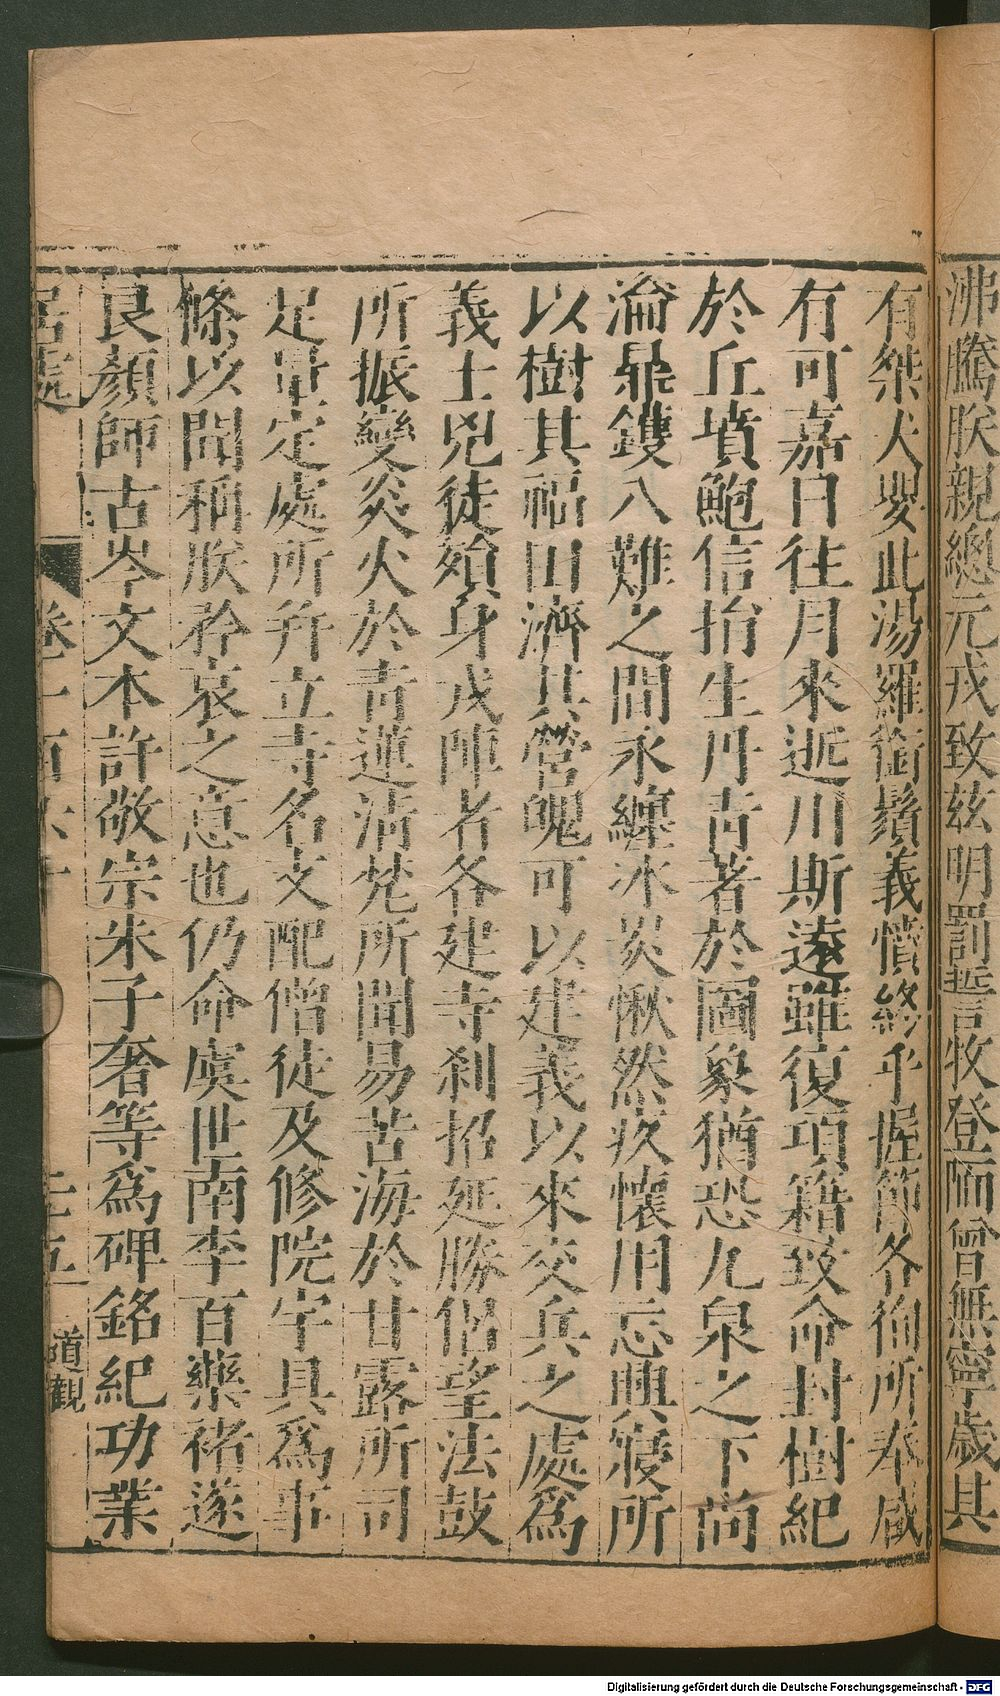 沸騰朕親總元戎致茲明罰誓牧登陑曾無寧歲其
有桀犬嬰此湯羅銜鬚義憤終乎握節各徇所奉咸
有可嘉日往月來逝川斯遠雖復項籍致命封樹紀
於丘墳鮑信捐生丹青著於圖象猶恐九泉之下尚
淪鼎鑊八難之間永纏冰炭愀然疚懷用忘興寢所
以樹其福田濟其營魄可以建義以來交兵之處為
義士兇徒殞身戎陣者各建寺刹招延勝侶望法鼓
所振變炎火於青蓮清梵所聞易苦海於甘露所司
足量定處所并立寺名支配僧徒及修院宇具為事
條以聞稱朕矜哀之意也仍命虞世南李百藥褚遂
良顏師古岑文本許敬宗朱子奢等爲碑銘紀功業
居處 卷一百六十 三五 道觀
Digitalisierung gefördert durch die Deutsche Forschungsgemeinschaft - DFG